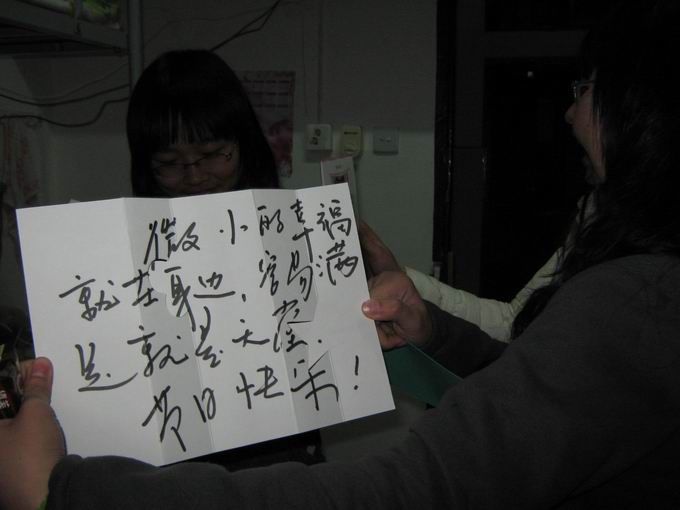 微小的幸福
就在身边,容易满
足就是天堂.
节日快乐!